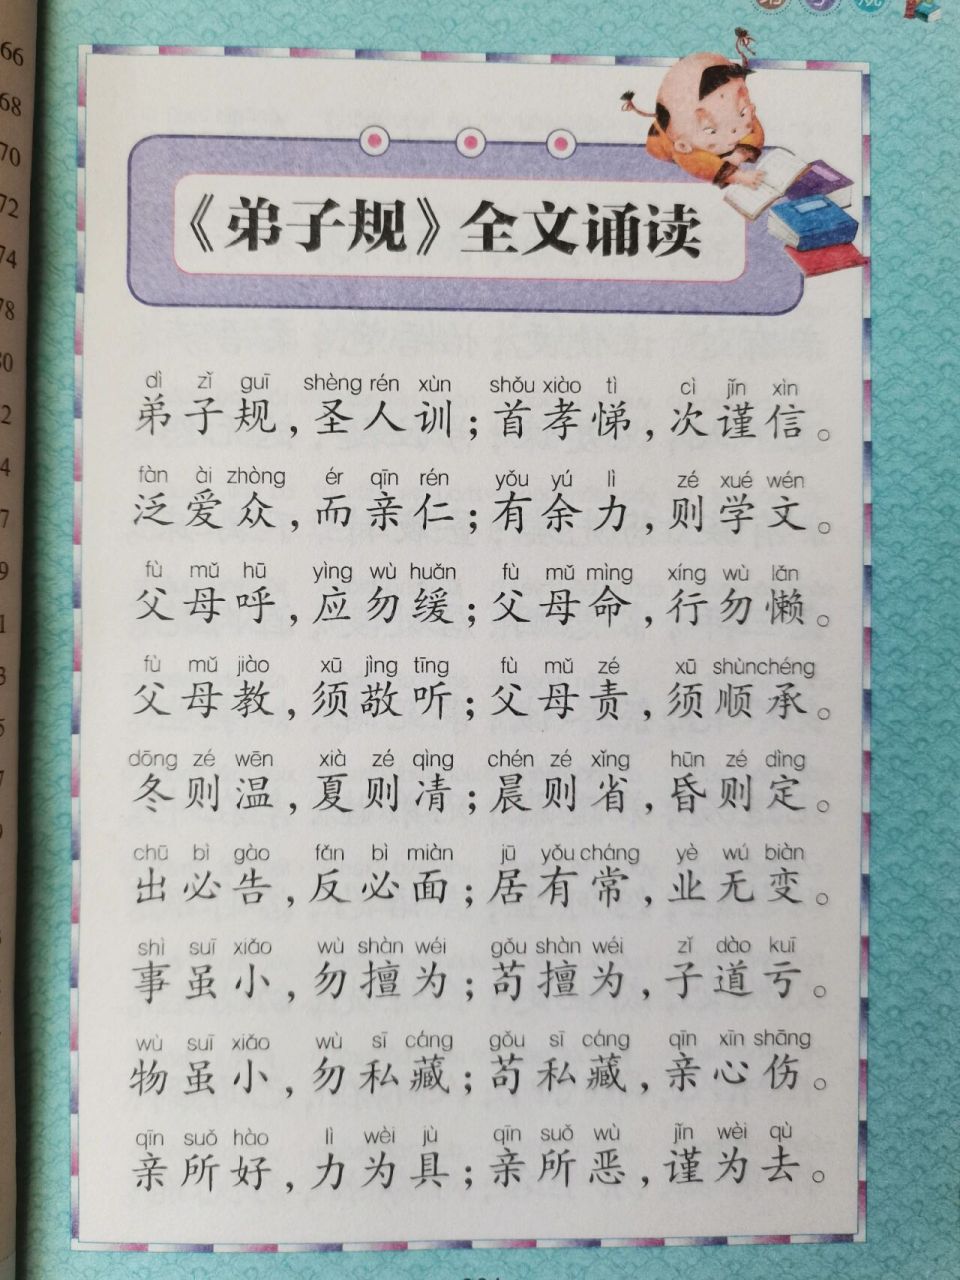 66
68
70
72
74
78
《弟子规》全文诵读
dì zǐ guī shèng rén xùn shǒu xiào tì cì jǐn xìn
弟子规，圣人训；首孝悌，次谨信。
fàn ài zhòng ér qīn rén yǒu yú lì zé xué wén
泛爱众，而亲仁；有余力，则学文。
fù mǔ hū yìng wù huǎn fù mǔ mìng xíng wù lǎn
父母呼，应勿缓；父母命，行勿懒。
fù mǔ jiào xū jìng tīng fù mǔ zé xū shùn chéng
父母教，须敬听；父母责，须顺承。
dōng zé wēn xià zé qìng chén zé xǐng hūn zé dìng
冬则温，夏则凊；晨则省，昏则定。
chū bì gào fǎn bì miàn jū yǒu cháng yè wú biàn
出必告，反必面；居有常，业无变。
shì suī xiǎo wù shàn wéi gǒu shàn wéi zǐ dào kuī
事虽小，勿擅为；苟擅为，子道亏。
wù suī xiǎo wù sī cáng gǒu sī cáng qīn xīn shāng
物虽小，勿私藏；苟私藏，亲心伤。
qīn suǒ hào lì wèi jù qīn suǒ wù jǐn wèi qù
亲所好，力为具；亲所恶，谨为去。